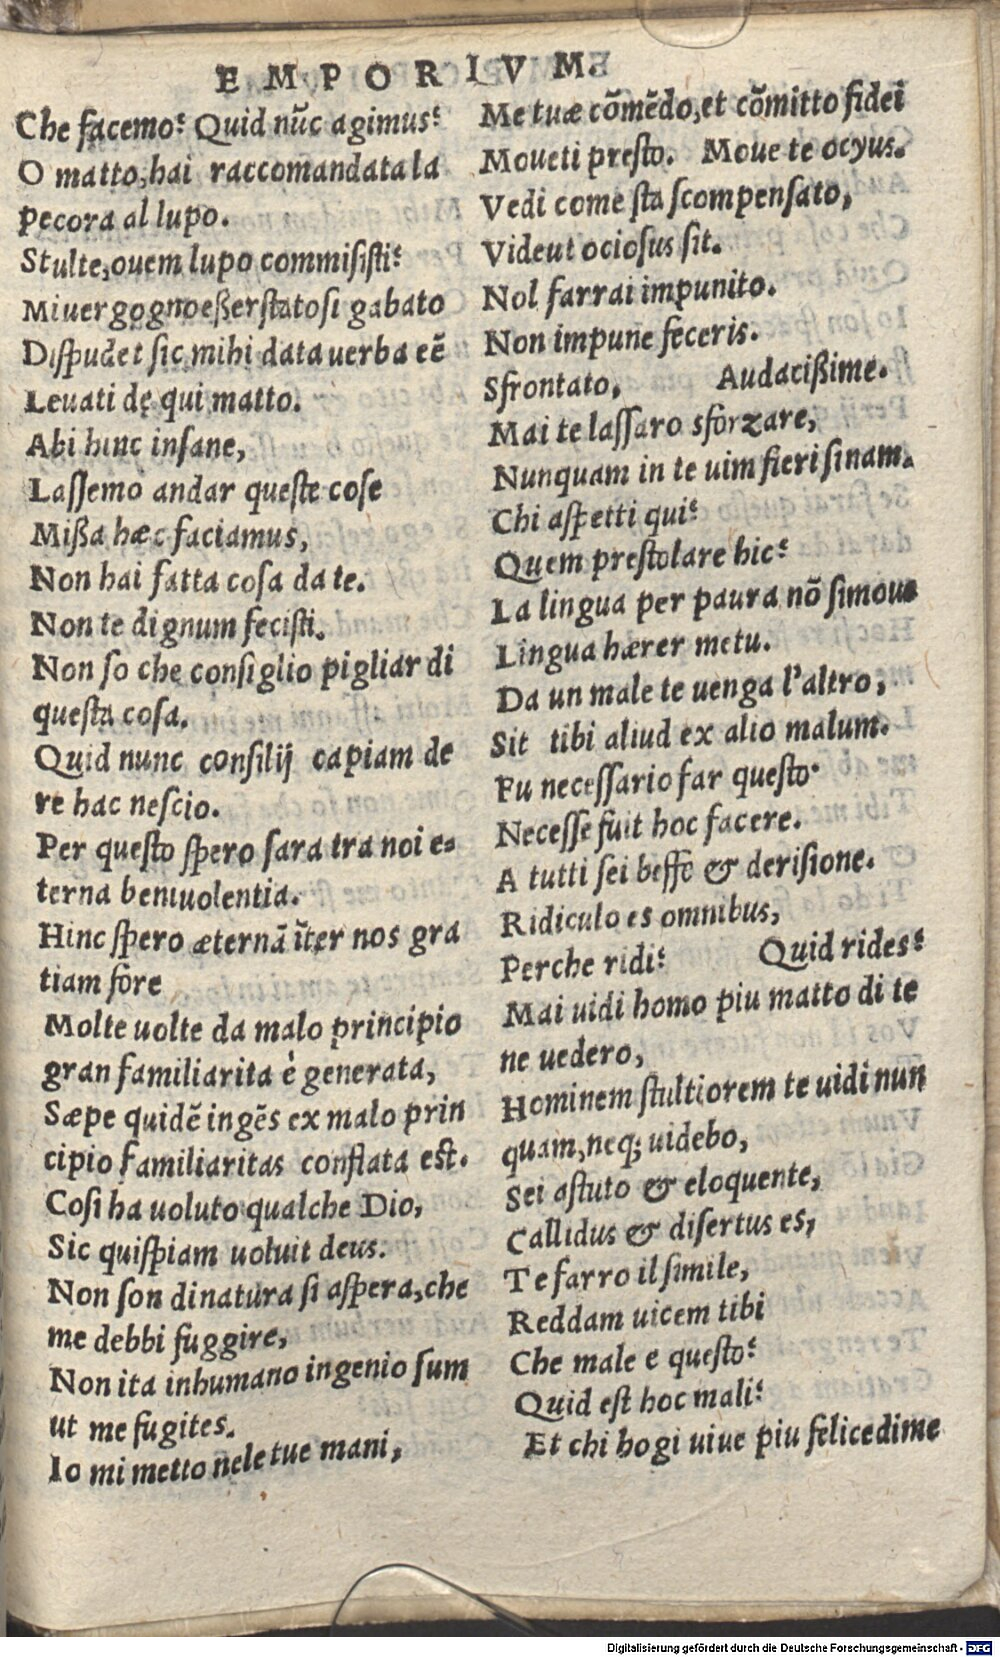 EMPORIVM.
Che facemo? Quid nūc agimus?
O matto, hai raccomandata la
pecora al lupo.
Stulte, ouem lupo commisisti?
Mi uergogno eßer stato si gabato
Dispudet sic mihi data uerba eē
Leuati de qui matto.
Abi hinc insane,
Lassemo andar queste cose
Mißa hæc faciamus,
Non hai fatta cosa da te.
Non te dignum fecisti.
Non so che consiglio pigliar di
questa cosa.
Quid nunc consilij capiam de
re hac nescio.
Per questo spero sara tra noi e-
terna beniuolentia.
Hinc spero æternā īter nos gra
tiam fore
Molte uolte da malo principio
gran familiarita è generata,
Sæpe quidē ingēs ex malo prin
cipio familiaritas conflata est.
Cosi ha uoluto qualche Dio,
Sic quispiam uoluit deus.
Non son di natura si aspera, che
me debbi fuggire,
Non ita inhumano ingenio sum
ut me fugites.
Io mi metto nele tue mani,
Me tuæ cōmēdo, et cōmitto fidei
Moueti presto. Moue te ocyus.
Vedi come sta scompensato,
Vide ut ociosus sit.
Nol farrai impunito.
Non impune feceris.
Sfrontato, Audacißime.
Mai te lassaro sforzare,
Nunquam in te uim fieri sinam.
Chi aspetti qui?
Quem prestolare hic?
La lingua per paura nō si moue
Lingua hærer metu.
Da un male te uenga l'altro,
Sit tibi aliud ex alio malum.
Fu necessario far questo
Necesse fuit hoc facere.
A tutti sei beffe & derisione.
Ridiculo es omnibus,
Perche ridi? Quid rides?
Mai uidi homo piu matto di te
ne uedero,
Hominem stultiorem te uidi nun
quam, neq; uidebo,
Sei astuto & eloquente,
Callidus & disertus es,
Te farro il simile,
Reddam uicem tibi
Che male e questo?
Quid est hoc mali?
Et chi hogi uiue piu felice di me
Digitalisierung gefördert durch die Deutsche Forschungsgemeinschaft - DFG